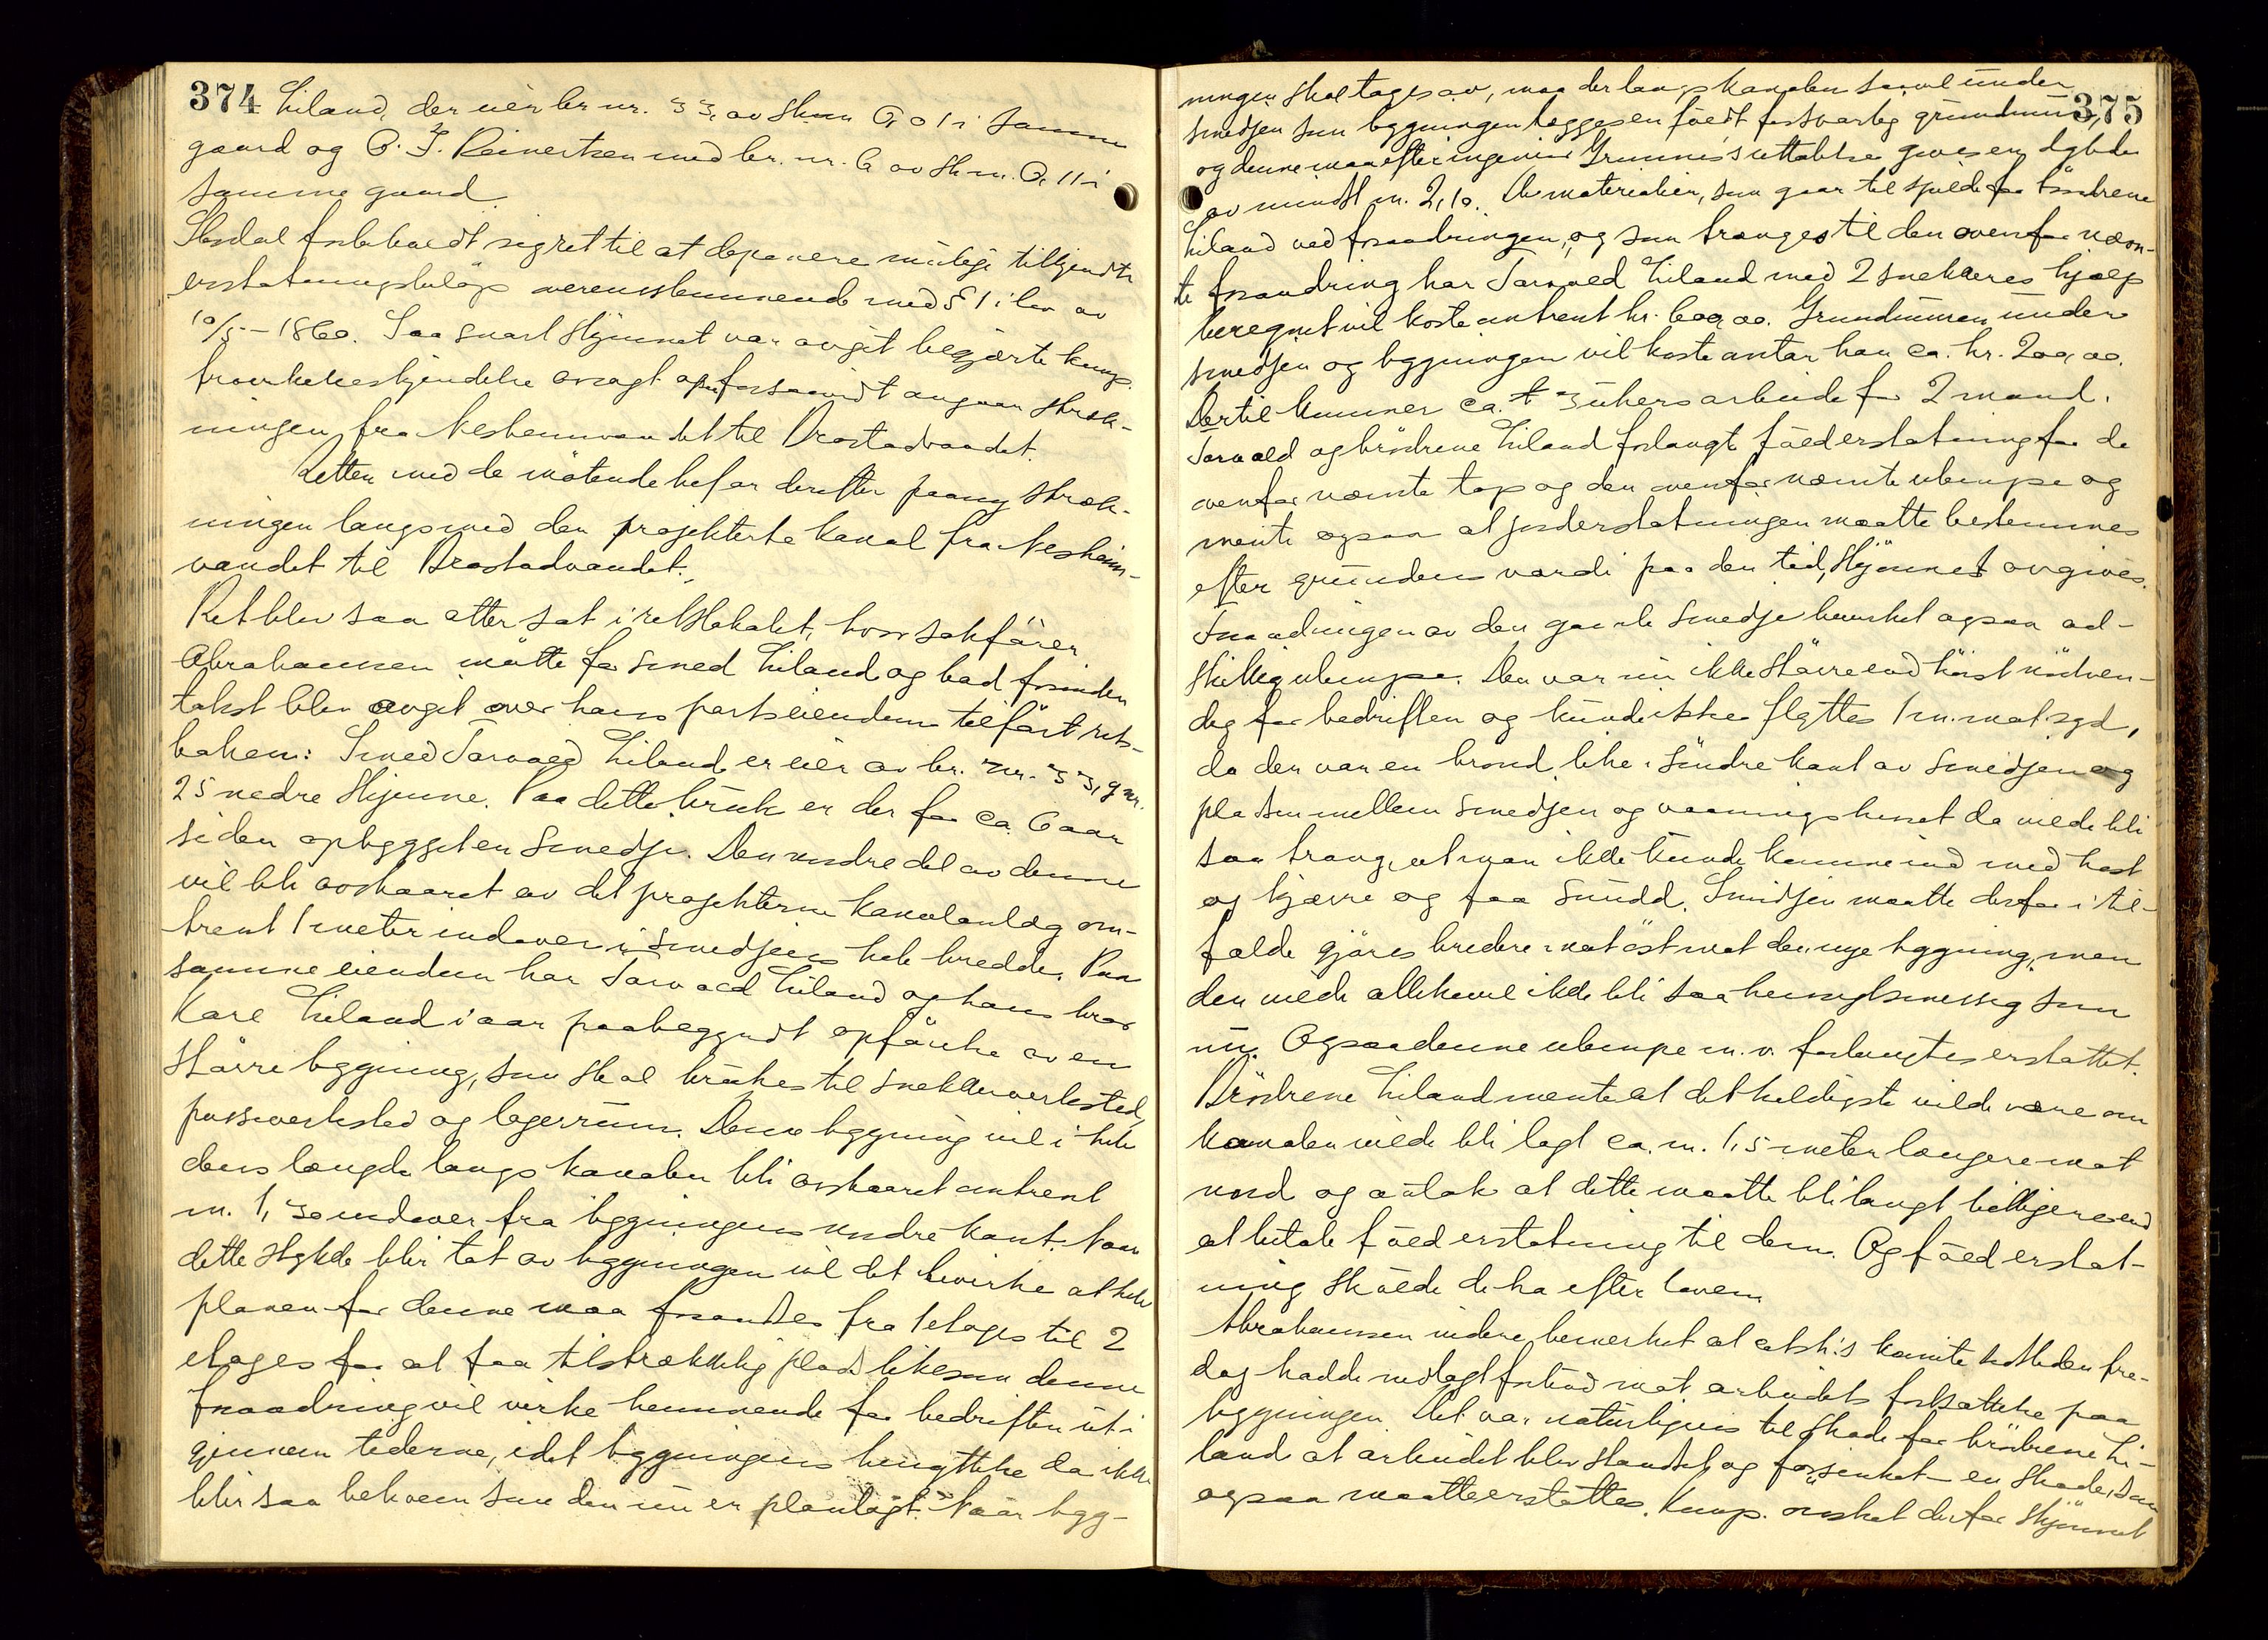 374
Liland, der eier br nr. 33, av skm 0,01 i samme
gaard og P. J. Reinertsen med br. nr. 6 av skm. 0,11 i
samme gaard.
Skodal forbeholdt sig ret til at deponere mulige tilkjendte
erstatningsbeløp overensstemmende med § 1 i lov av
10/5-1860. Saa snart skjønnet var avgit begjærte komp.
travrkelseskjendelse avsagt forsaavidt angaar stræk-
ningen fra Nesheimvandet til Brastadvandet.
Retten med de møtende befar derefter paany stræk-
ningen langs med den projekterte kanal fra Nesheim-
vandet til Brastadvandet.
Ret blev saa atter sat i retslokalet, hvor sakfører
Abrahamsen møtte for smed Liland og bad forinden
takst blev avgit over hans parts eiendom tilført rets-
boken: Smed Torvald Liland er eier av br. nr. 33, g.nr.
25 nedre Skjenne. Paa dette bruk er der for ca. 6 aar
siden opbygget en smedje. Den nordre del av denne
vil bli avskaaret av det projekterte kanalanlæg om-
trent 1 meter indover i smedjens hele bredde. Paa
samme eiendom har Torvald Liland og hans bror
Kare Liland i aar paabegyndt opførelse av en
større bygning, som skal brukes til snekkerverksted,
pusseverksted og lagerrum. Denne bygning vil i hele
dens længde langs kanalen bli avskaaret omtrent
m. 1,30 indover fra bygningens nordre kant. Naar
dette stykke blir tat av bygningen vil det bevirke at hele
planen for denne maa forandres fra 1 etages til 2
etages for at faa tilstrækkelig plads likesom denne
forandring vil virke hemmende for bedriften ut i
gjennem tiderne, idet bygningens benyttelse da ikke
blir saa bekvem som den nu er planlagt. Naar byg-
375
ningen skal tages av, maa der langs kanalen saavel under
smedjen som bygningen lægges en fuldt forsvarlig grundmur,
og denne maa efter ingeniør Grimnes's uttalelse gives en dybde
av mindst m. 2,10. De materialier, som gaar til spilde for brødrene
Liland ved forandringen, og som trænges til den ovenfor nævn-
te forandring har Torvald Liland med 2 snekkeres hjælp
beregnet vil koste omtrent kr. 600,00. Grundmuren under
smedjen og bygningen vil koste antar han ca. kr. 200,00.
Dertil kommer ca. 3 ukers arbeide for 2 mand.
Torvald og brødrene Liland forlangte fuld erstatning for de
ovenfor nævnte tap og den ovenfor nævnte ulempe og
mente ogsaa at jorderstatningen maatte bestemmes
efter grundens værdi paa den tid, skjønnet avgives.
Forandringen av den gamle smedje bevirket ogsaa ad-
skillig ulempe. Den var nu ikke større end høist nødven-
dig for bedriften og kunde ikke flyttes 1 m. mot syd,
da der var en brønd like i søndre kant av smedjen og
pladsen mellem smedjen og vaaningshuset da vilde bli
saa trang, at man ikke kunde komme ind med hest
og kjærre og faa snudd. Smedjen maatte derfor i til-
fælde gjøres bredere mot øst mot den nye bygning, men
den vilde allikevel ikke bli saa hensigtsmessig som
nu. Ogsaa denne ulempe m.v. forlangtes erstattet.
Brødrene Liland mente at det heldigste vilde være om
kanalen vilde bli lagt ca. m. 1,5 meter længere mot
nord og antok at dette maatte bli langt billigere end
at betale fuld erstatning til dem. Og fuld erstat-
ning skulde de ha efter loven.
Abrahamsen videre bemerket at komite tirsdag fre-
dag hadde nedlagt forbud mot arbeidets fortsættelse paa
bygningen. Det var naturligvis til skade for brødrene Li-
land at arbeidet blev standset og forsinket – en skade, som
ogsaa maatte erstattes. Komp. ønsket derfor skjønnet